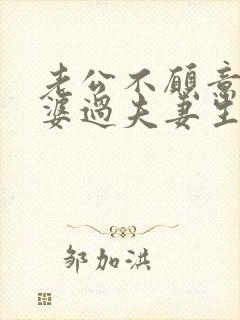 老公不愿意
婆過夫妻生
邹加洪